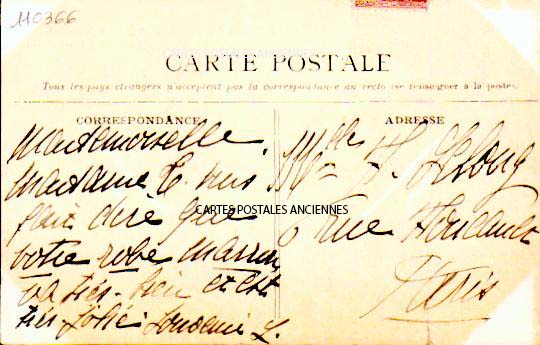 110366
CARTES POSTALES ANCIENNES
CARTE POSTALE
Tous les pays étrangers n'acceptent pas la correspondance au recto (se renseigner à la poste)
CORRESPONDANCE
Mademoiselle.
Madame C. vous
fait dire que
CARTES POSTALES ANCIENNES
votre robe marron
va très-bien et est
très jolie L.
ADRESSE
Mlle F. Lelong
rue
Paris